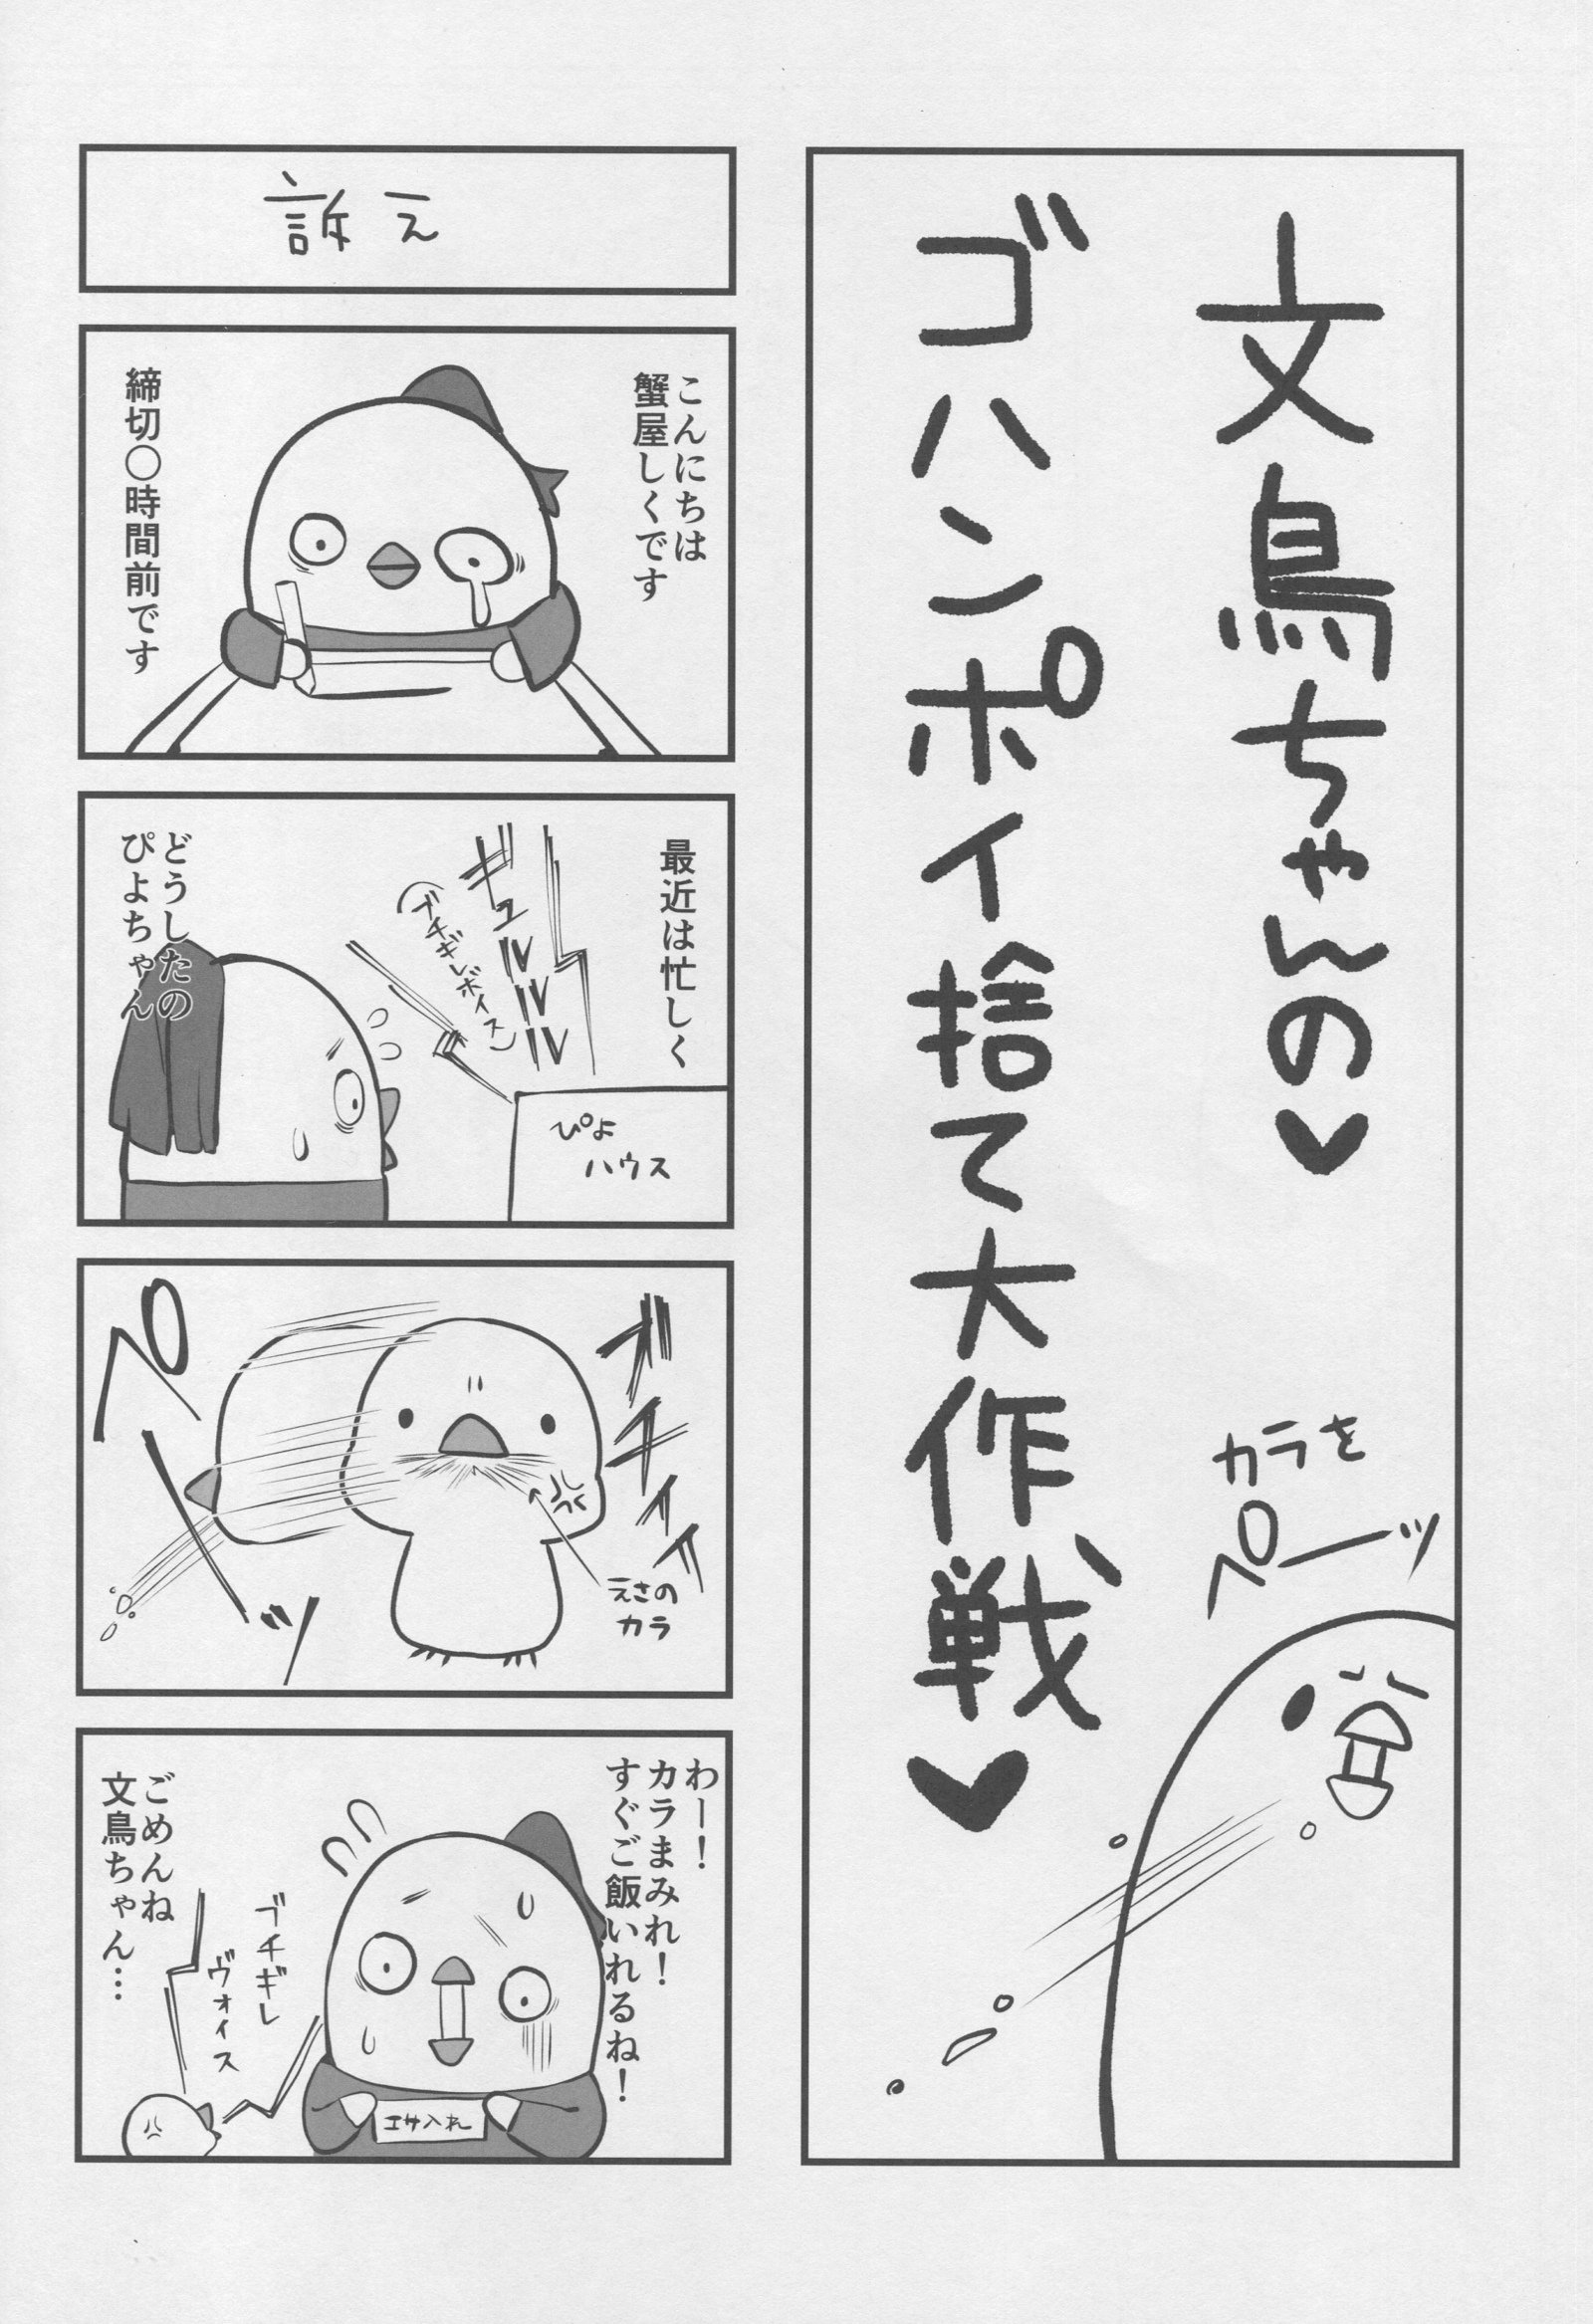 文鳥ちゃんの♥
ゴハンポイ捨て大作戦♥
カラを
ペーッ
訴え
こんにちは
蟹屋しくです
締切〇時間前です
最近は忙しく
ギュルルルル
(ブチギレボイス)
ぴよ
ハウス
どうしたの
ぴよちゃん
ブチィィ
えさの
カラ
ペーッ
わー！
カラまみれ！
すぐご飯いれるね！
エサ入れ
ブチギレ
ヴォイス
ごめんね
文鳥ちゃん…